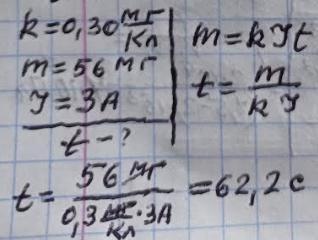 k = 0,30 мг/Кл
m = 56 мг
J = 3 А
t - ?
m = kJt
t = m/kJ
t = 56 мг/0,3 мг/Кл · 3А = 62,2 с